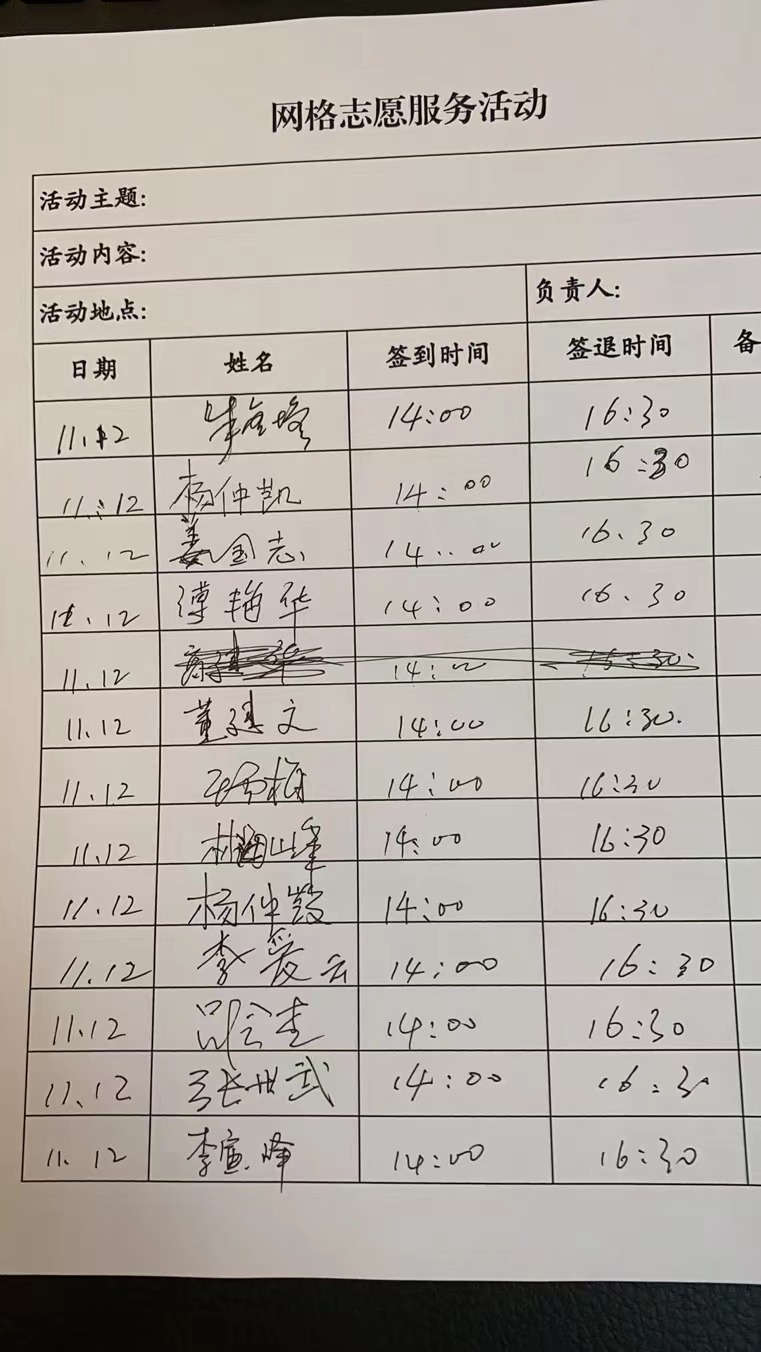 网格志愿服务活动
活动主题:
活动内容:
活动地点: 负责人:
日期 姓名 签到时间 签退时间 备
11.12 14:00 16:30
11.12 杨仲凯 14:00 16:30
11.12 姜国志 14:00 16.30
11.12 傅艳华 14:00 16.30
11.12 14:00 16:30
11.12 董建文 14:00 16:30.
11.12 14:00 16:30
11.12 14:00 16:30
11.12 杨仲凯 14:00 16:30
11.12 李爱云 14:00 16:30
11.12 14:00 16:30
11.12 张世武 14:00 16:30
11.12 李宣峰 14:00 16:30